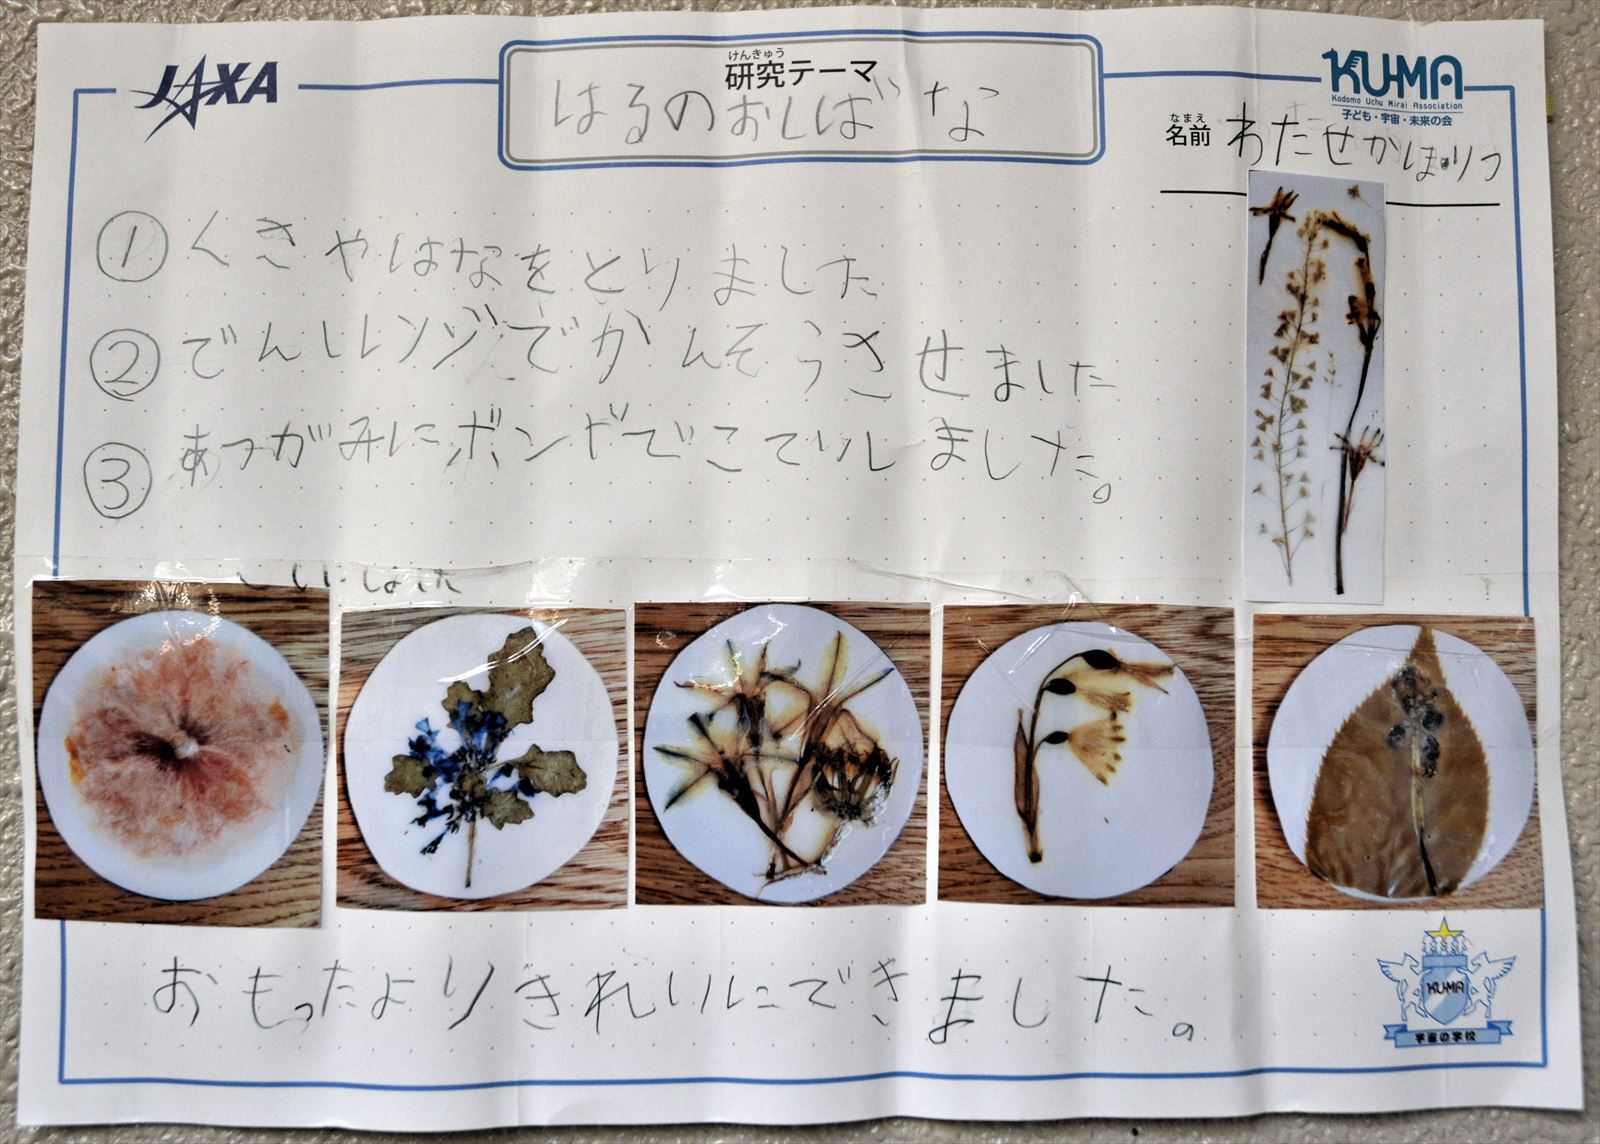 JAXA
けんきゅう
研究テーマ
はるのおしばな
KUMA
Kodomo Uchu Mirai Association
子ども・宇宙・未来の会
なまえ
名前 わたせかほ
① くきやはなをとりました
② でんしレンジでかんそうさせました
③ あつがみにボンドでこていしました。
おもったよりきれいにできました。
KUMA
宇宙の学校